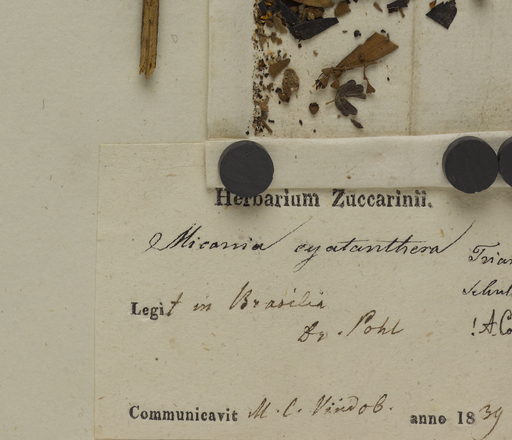 Herbarium Zuccarinii.
Miconia cyatanthera Trian
Schul
Legit in Brasilia
Dr. Pohl ! A Co
Communicavit M. C. Vindob. anno 1839